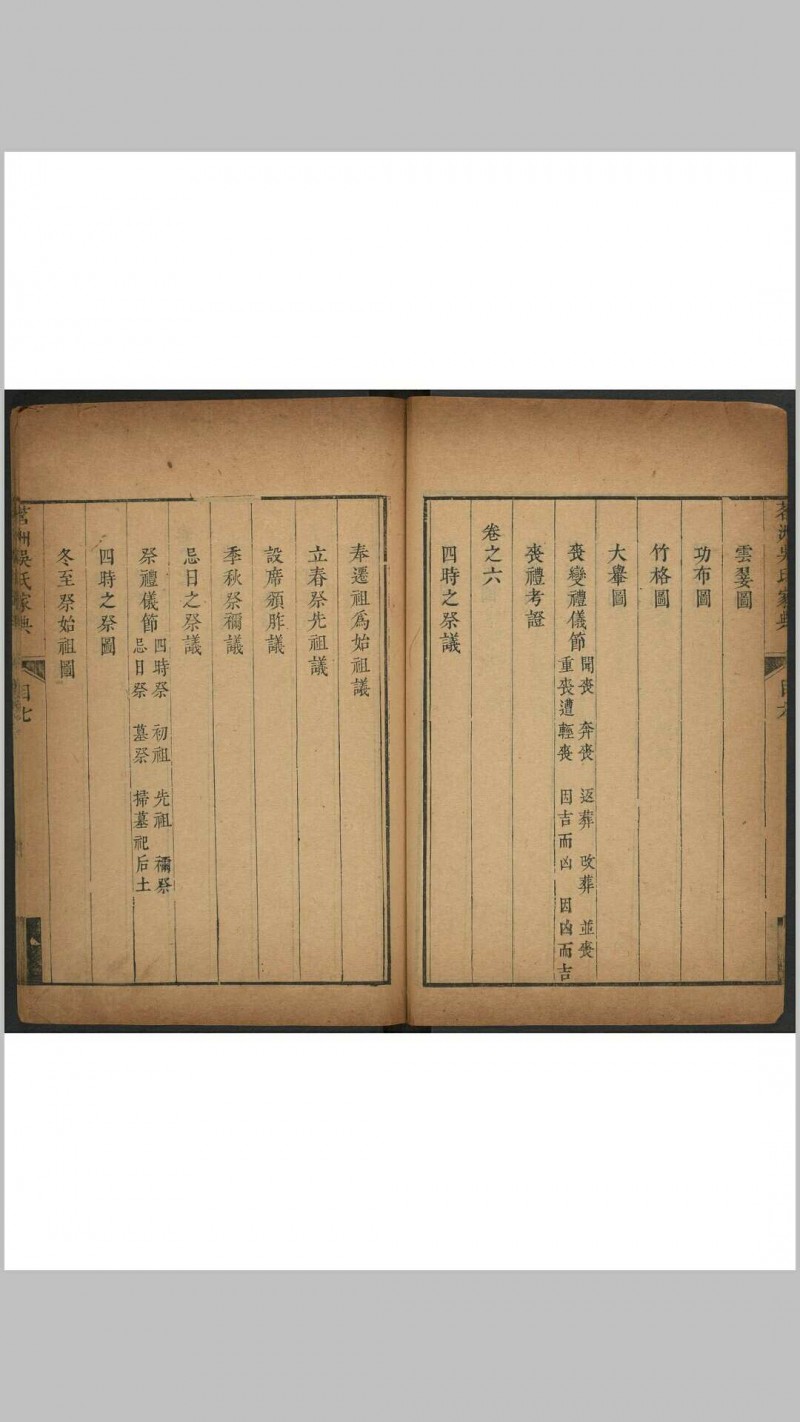 雲翣圖
功布圖
竹格圖
大轝圖
喪變禮儀節 聞喪 奔喪 返葬 改葬 並喪
重喪遭輕喪 因吉而凶 因凶而吉
喪禮考證
卷之六
四時之祭議
奉遷祖爲始祖議
立春祭先祖議
設席頒胙議
季秋祭禰議
忌日之祭議
祭禮儀節 四時祭 初祖 先祖 禰祭
忌日祭 墓祭 掃墓祀后土
四時之祭圖
冬至祭始祖圖
茗洲吳氏家典
目七